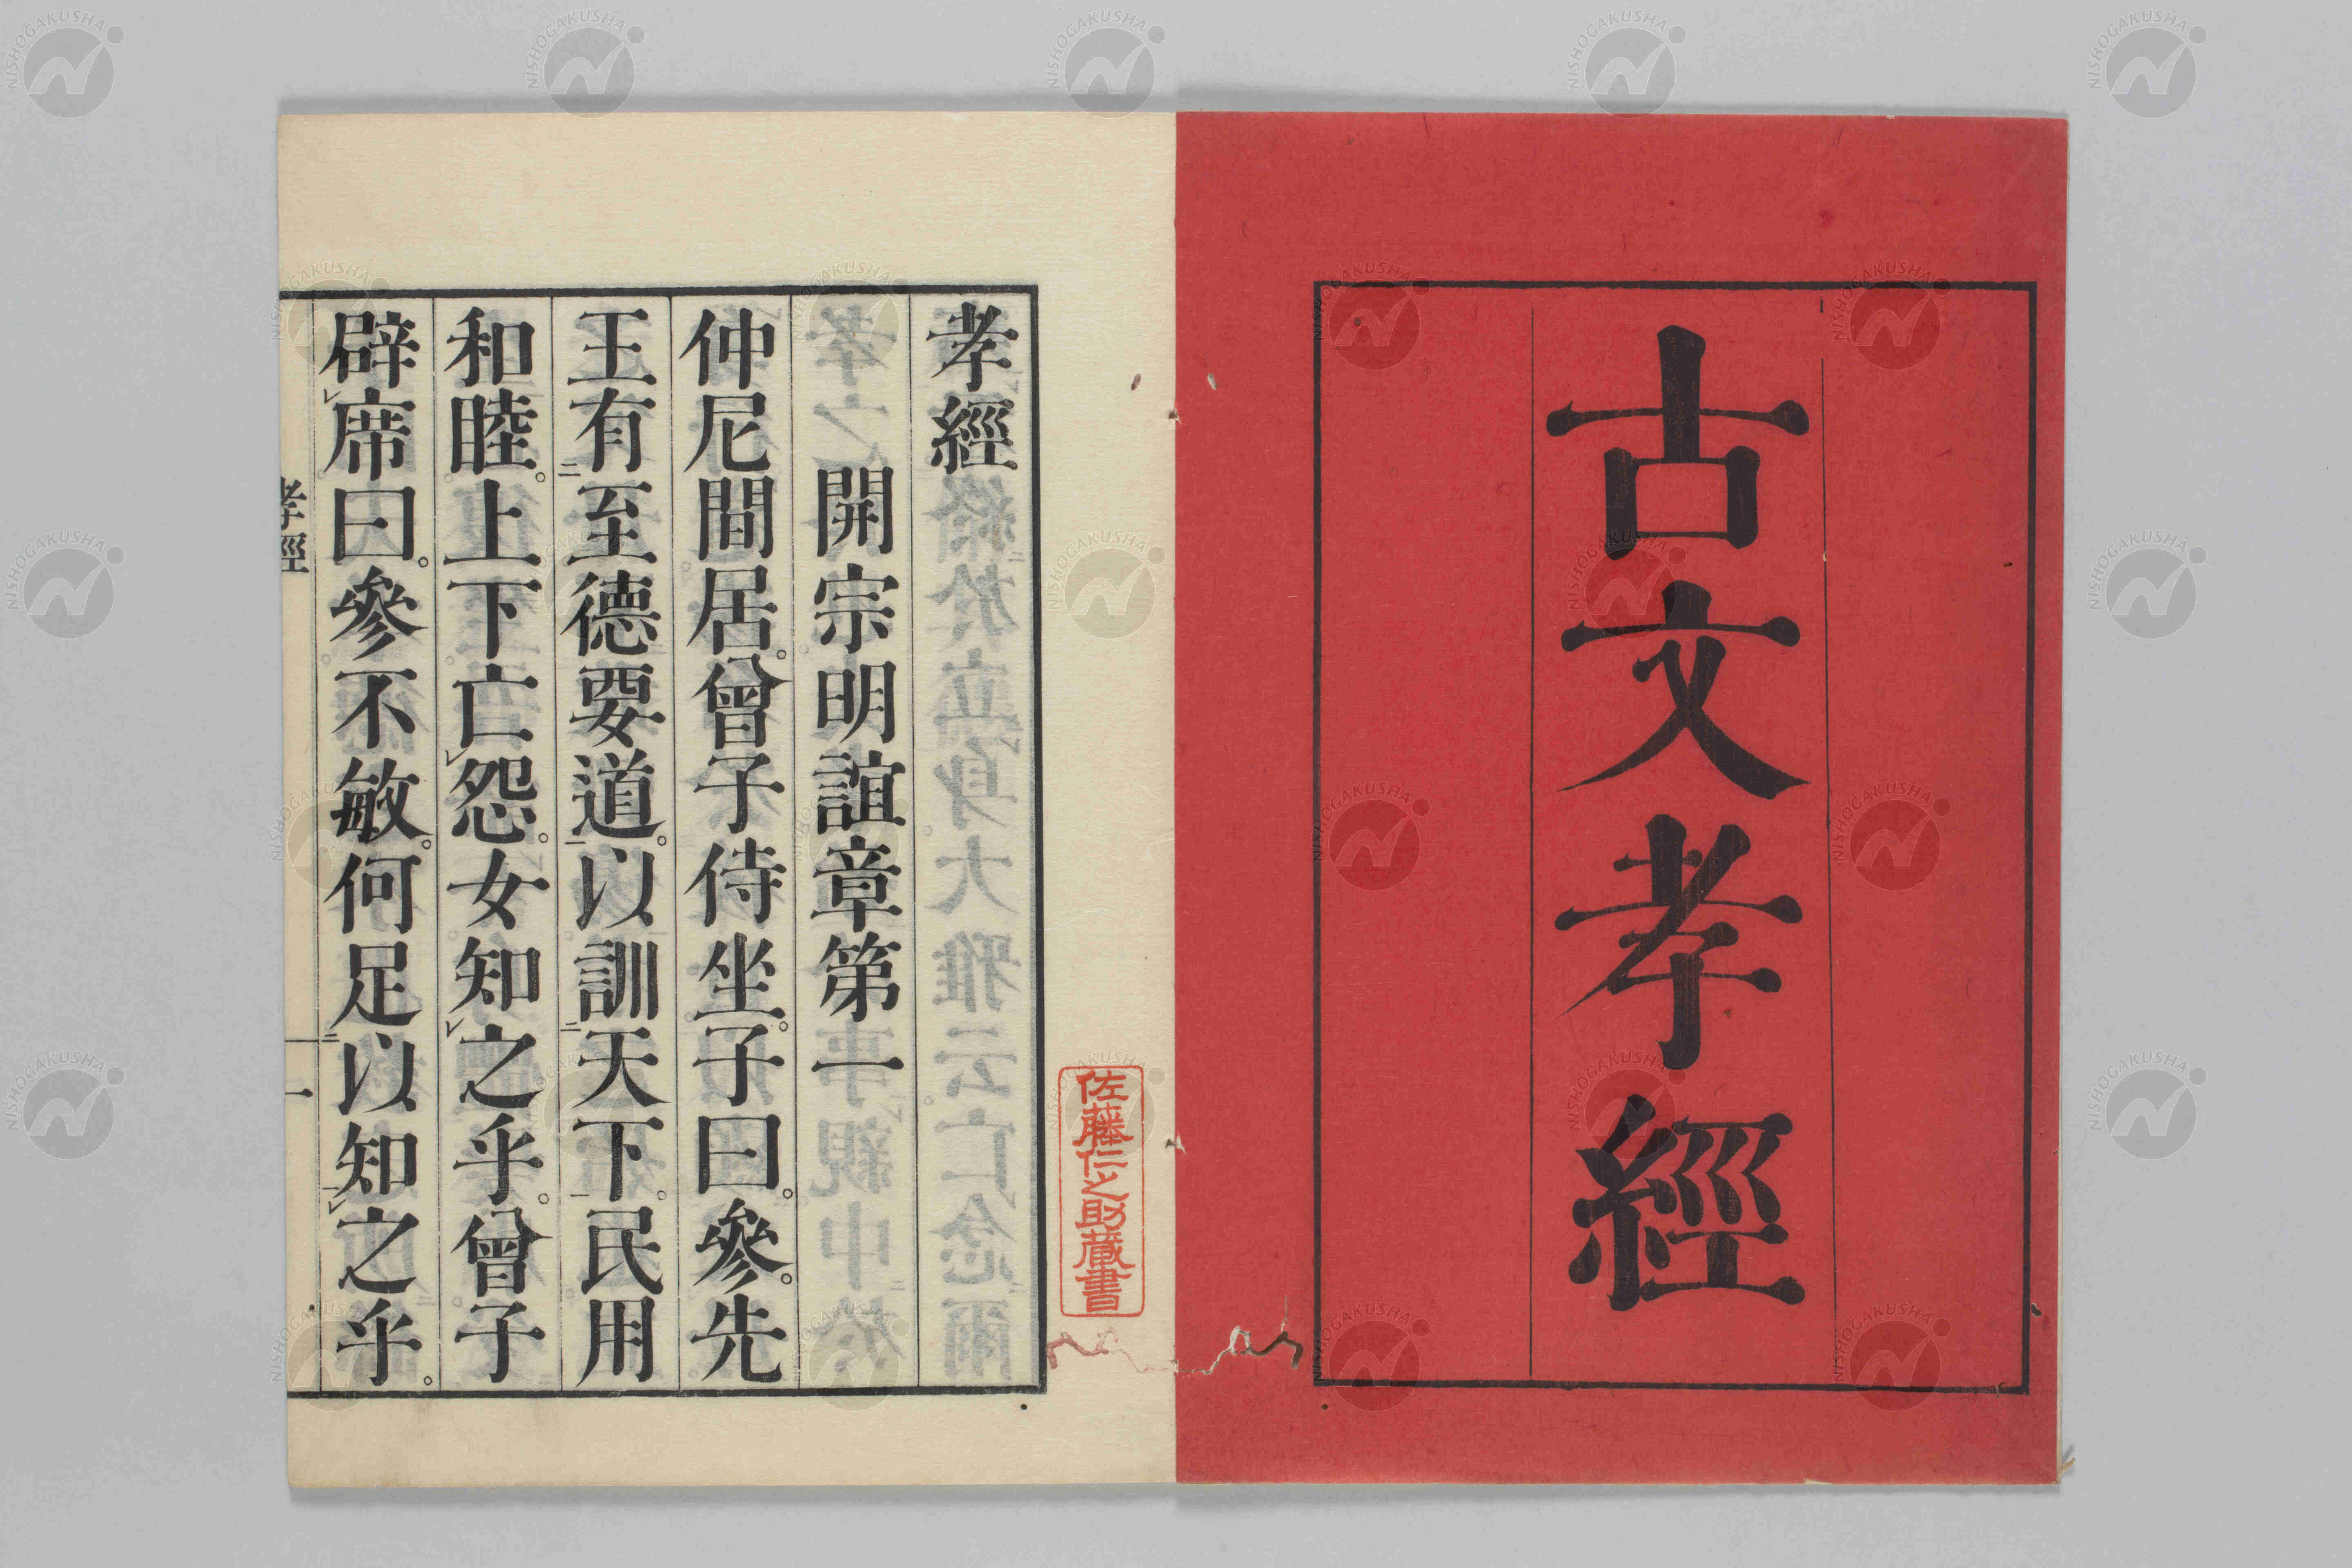 古文孝經
佐藤仁之助蔵書
孝經
開宗明誼章第一
仲尼間居。曾子侍坐。子曰。參。先
王有二至德要道。一以訓二天下。一民用
和睦。上下亡レ怨。女知レ之乎。曾子
辟レ席曰。參不敏。何足二以知一レ之乎。
孝經
一
NISHOGAKUSHA